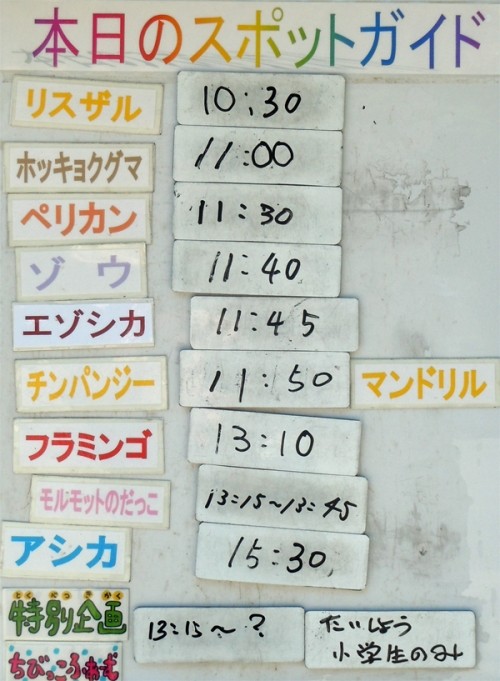 本日のスポットガイド
リスザル 10:30
ホッキョクグマ 11:00
ペリカン 11:30
ゾウ 11:40
エゾシカ 11:45
チンパンジー 11:50 マンドリル
フラミンゴ 13:10
モルモットのだっこ 13:15~13:45
アシカ 15:30
とくべつきかく
特別企画 13:15~? たいしょう
小学生のみ